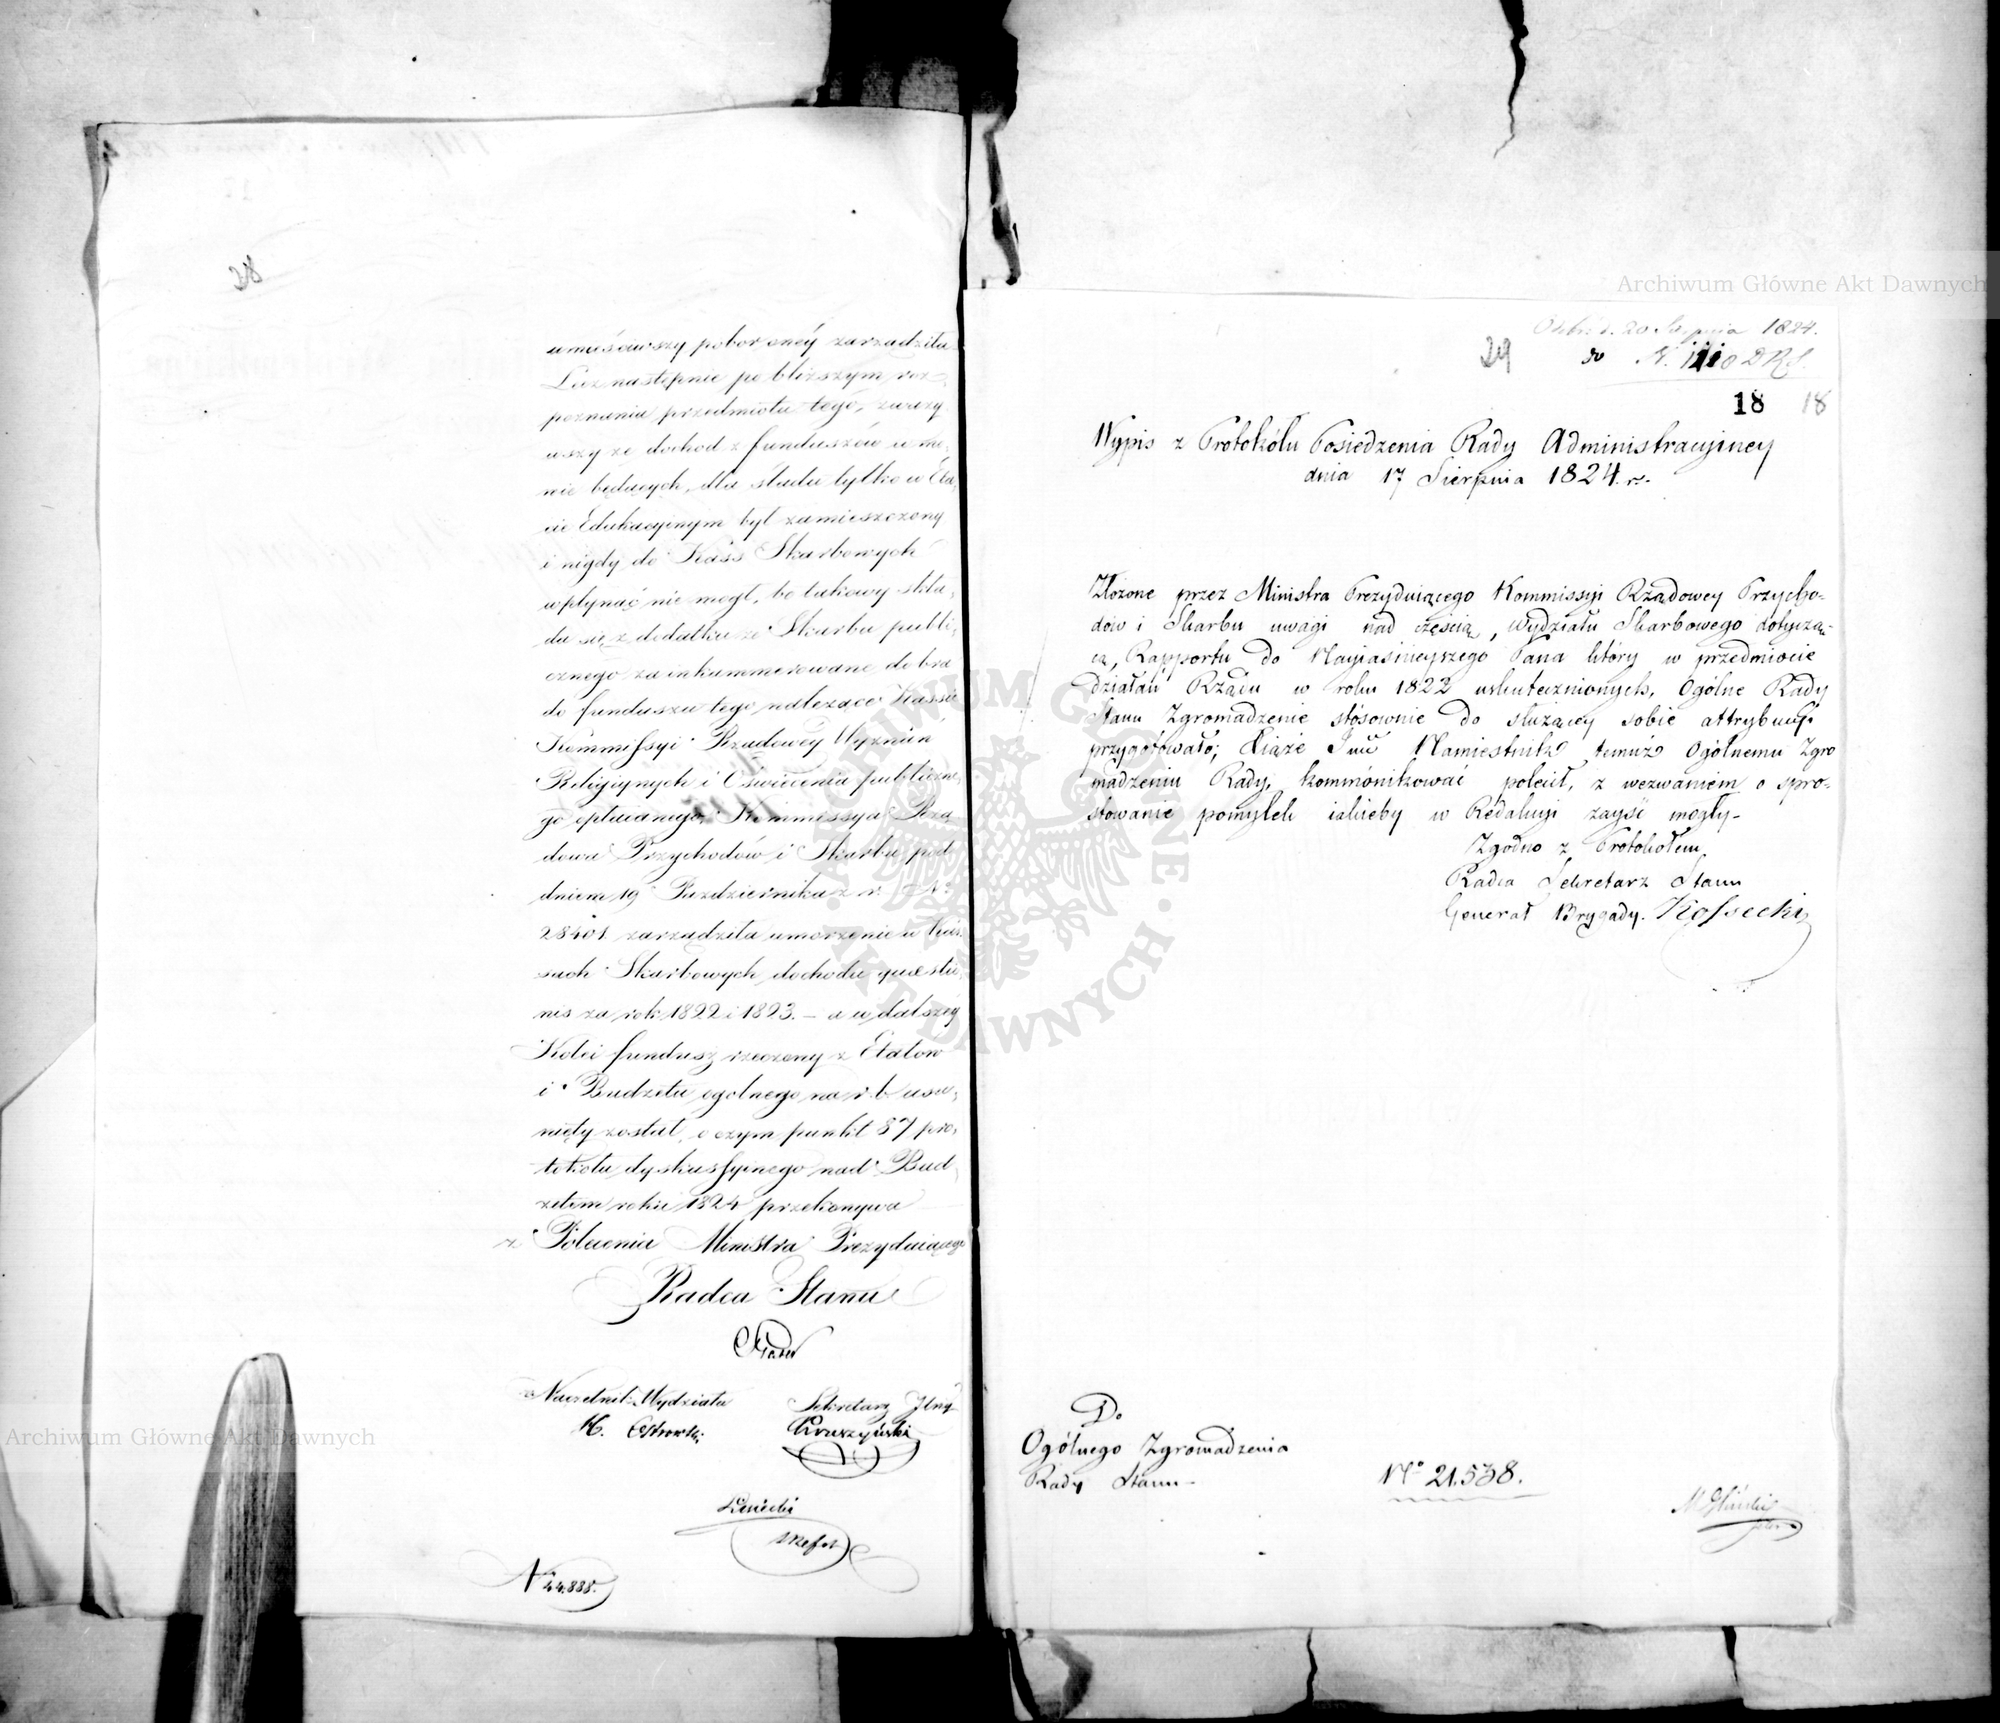 28
umieściwszy pobor onéy zarządziła
Lecz następnie po bliższym roz-
poznaniu przedmiotu tego, zważy
wszy że dochod z funduszów w mo-
wie będących, dla śladu tylko w Eta-
cie Edukacyinym był zamieszczony
i nigdy do Kass Skarbowych
wpłynąć nie mogł, bo takowy skła-
da się z dodatku ze Skarbu publi-
cznego za inkammerowane dobra
do funduszu tego należące Kassie
Kommissyi Rządowéy Wyznań
Religiynych i Oświecenia publiczne-
go opłacanego, Kommissya Rzą
dowa Przychodów i Skarbu pod
dniem 19 Pazdziernika z. r. No
28401 zarządziła umorzenie w Kas-
sach Skarbowych dochodu quaestio-
nis za rok 1822 i 1823. – a w dalszéy
Kolei fundusz rzeczony z Etatow
i Budżetu ogolnego na r. b. usu-
nięty został, o czym punkt 87 pro-
tokołu dyskussyinego nad Bud-
żetem roku 1824 przekonywa
z Polecenia Ministra Prezyduiącego
Radca Stanu
Naczelnik Wydziału
Sekretarz Jlny
Kruszyński
N 44.888.
Archiwum Główne Akt Dawnych
Odebr. d. 20 Sierpnia 1824.
29
do N. 1110 D.R.S.
18 18
Wypis z Protokółu Posiedzenia Rady Administracyiney
dnia 17 Sierpnia 1824. r.
Złożone przez Ministra Prezyduiącego Kommissyi Rządowey Przycho-
dów i Skarbu uwagi nad częścią, Wydziału Skarbowego dotycza-
cą, Rapportu do Nayiaśnieyszego Pana który w przedmiocie
działań Rządu w roku 1822 uskutecznionych, Ogólne Rady
Stanu Zgromadzenie stósownie do służącey sobie attrybucyi
przygotowało; Xiąże Jmć Namiestnik temuż Ogólnemu Zgro
madzeniu Rady, kommónikować polecił, z wezwaniem o spro-
stowanie pomyłek iakieby w Redakcyi zayść mogły-
Zgodno z Protokołem
Radca Sekretarz Stanu
Generał Brygady. Kossecki
Do
Ogólnego Zgromadzenia
Rady Stanu-
No 21.538.
ARCHIWUM GŁÓWNE AKT DAWNYCH
Archiwum Główne Akt Dawnych